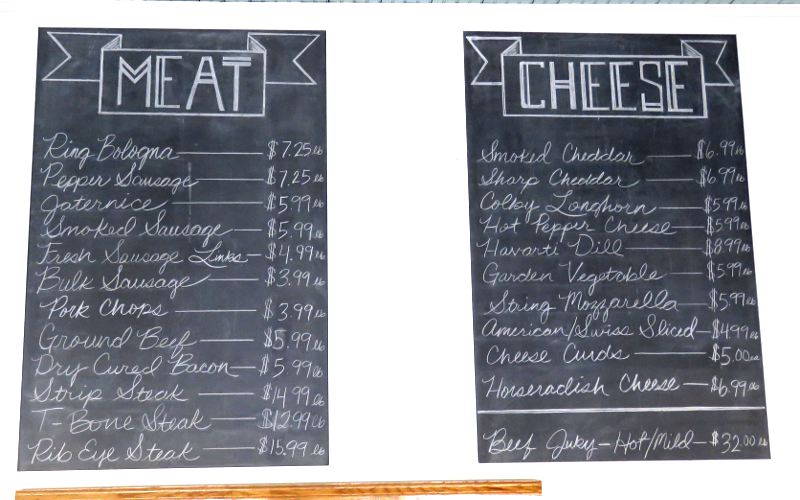 MEAT
Ring Bologna $7.25 lb
Pepper Sausage $7.25 lb
Jaternice $5.99 lb
Smoked Sausage $5.99 lb
Fresh Sausage Links $4.99 lb
Bulk Sausage $3.99 lb
Pork Chops $3.99 lb
Ground Beef $5.99 lb
Dry Cured Bacon $5.99 lb
Strip Steak $14.99 lb
T-Bone Steak $12.99 lb
Rib Eye Steak $15.99 lb
CHEESE
Smoked Cheddar $6.99 lb
Sharp Cheddar $6.99 lb
Colby Longhorn $5.99 lb
Hot Pepper Cheese $5.99 lb
Havarti Dill $8.99 lb
Garden Vegetable $5.99 lb
String Mozzarella $5.99 lb
American/Swiss Sliced $4.99 lb
Cheese Curds $5.00 ea
Horseradish Cheese $6.99 lb
Beef Jerky - Hot/Mild - $32.00 lb